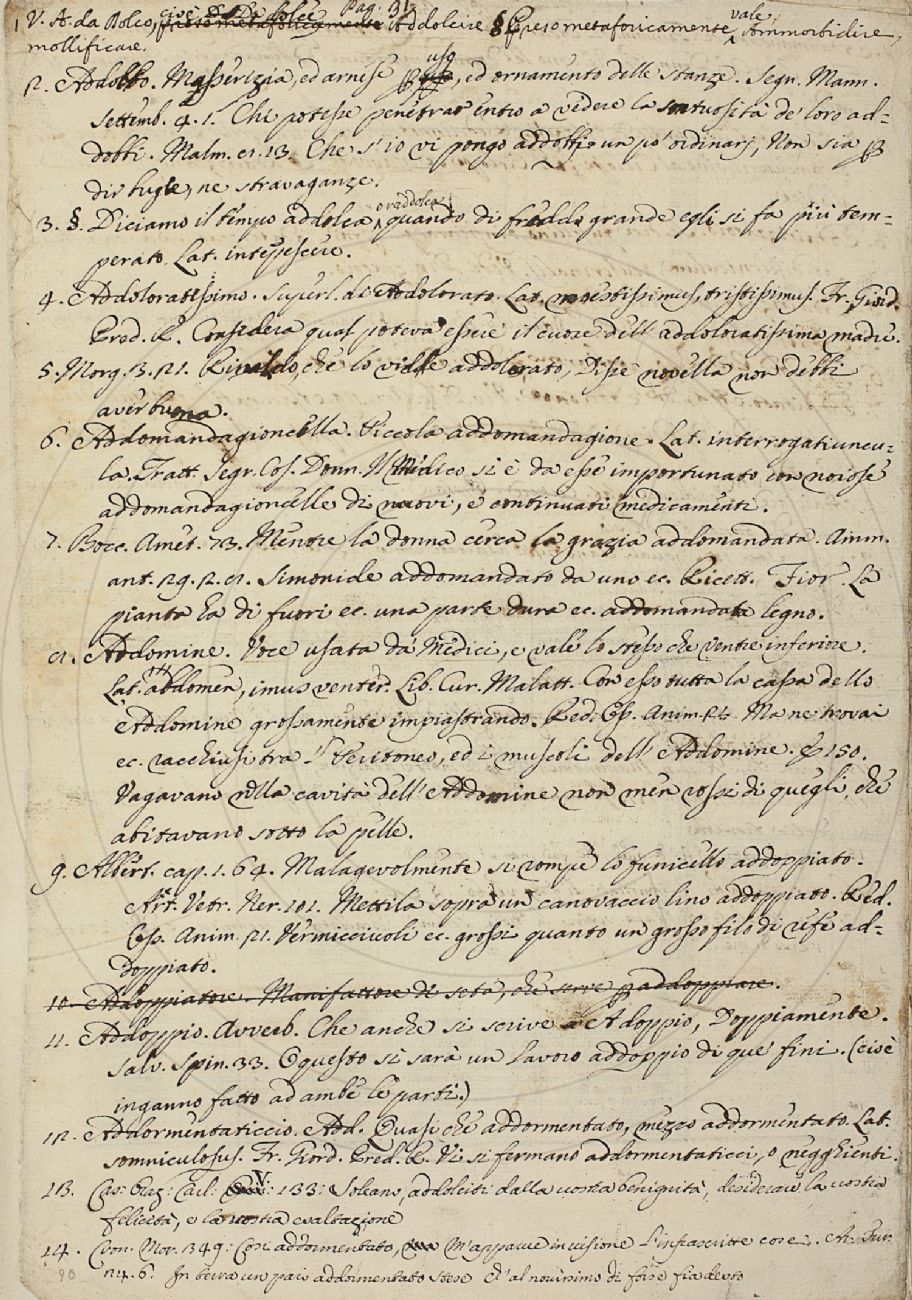 Pag. 31.
1 V. A. da Dolco, cioè §. Di dolce Addolcire § Preso metaforicamente vale Ammorbidire,
mollificare.
2. Addobbo. Masserizia, ed arnese uso, ed ornamento delle stanze. Segn. Mann.
Settemb. 4. 1. Chi potesse penetrar entro a videre la sontuosità de' loro ad-
dobbi. Malm. 8. 13. Che s' io vi pongo addobbi un po' ordinarj, Non sia p
dir bugie, ne stravaganze.
3. §. Diciamo il tempo addolca, o raddolca, quando di freddo grande egli si fa più tem-
perato. Lat. intepescere.
4. Addoloratissimo. Superl. di Addolorato. Lat. moestissimus, tristissimus. Fr. Giord.
Pred. R. Considera qual poteva essere il cuore dell' addoloratissima madre.
5. Morg. 3. 21. Rinaldo, che lo vidde addolorato, Disse novella non debbi
aver buona.
6. Addomandagioncella. Piccola addomandagione. Lat. interrogatiuncu-
la. Tratt. Segr. Cos. Donn. Il Midico si è da esse importunato con noiose
addomandagioncelle di nuovi, e continuati medicamenti.
7. Bocc. Amet. 73. Mentre la donna cerca la grazia addomandata. Amm.
ant. 29. 2. 8. Simonide addomandato da uno ec. Ricett. Fior. La
pianta ha di fuori ec. una parte dura ec. addomandata legno.
8. Addomine. Voce usata da Medici, e vale lo stesso che ventre inferiore.
Lat. abdomen, imus venter. Lib. Cur. Malatt. Con esso tutta la cassa dello
Addomine grossamente impiastrando. Red. Oss. Anim. 24. Ma ne trovai
ec. racchiusi tra 'l Peritoneo, ed i muscoli dell' Addomine. E 150.
Vagavano nella cavità dell' Addomine non men rossi di quegli, che
abitavano sotto la pelle.
9. Albert. cap. 1. 64. Malagevolmente si rompe lo funicello addoppiato.
Art. Vetr. Ner. 101. Mettila sopra un canovaccio lino addoppiato. Red.
Oss. Anim. 21. Vermicciuoli ec. grossi quanto un grosso filo di refe ad-
doppiato.
10. Addoppiatore. Manifattore di seta, che serve p addoppiare.
11. Addoppio. Avverb. Che anche si scrive A doppio, Doppiamente.
Salv. Spin. 33. O questo si sarà un lavoro addoppio di que' fini. (cioè
inganno fatto ad ambe le parti.)
12. Addormentaticcio. Add. Quasi che addormentato, mezzo addormentato. Lat.
somniculosus. Fr. Giord. Pred. R. Vi si fermano addormentaticci, o negghienti.
13. Cas: 133: addolciti dalla vostra benignità, desiderare la vostra
felicità, e la vostra esaltazione
14. Cron. Mor. 349: Così addormentato, m'apparve in visione l'infrascritte cose. Ar. Fur.
24. 6. In terra un paio addormentato stese Ch' al novissimo dì forse fia desto
90